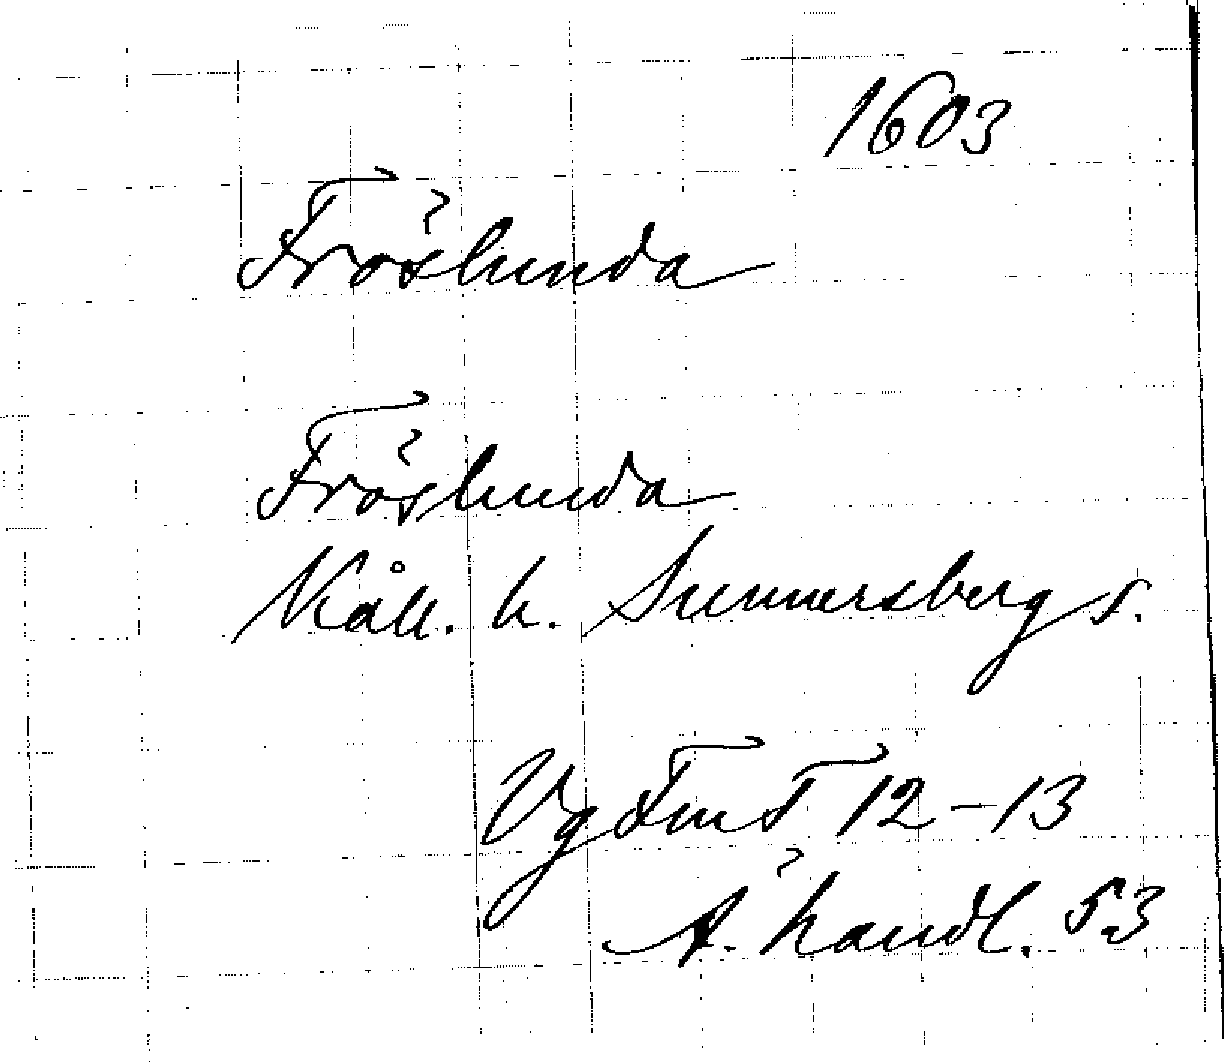 1603
Fröslunda
Fröslunda
Kåll. h. Sunnersbergs s.
Vg FmT 12-13
A. handl. 53